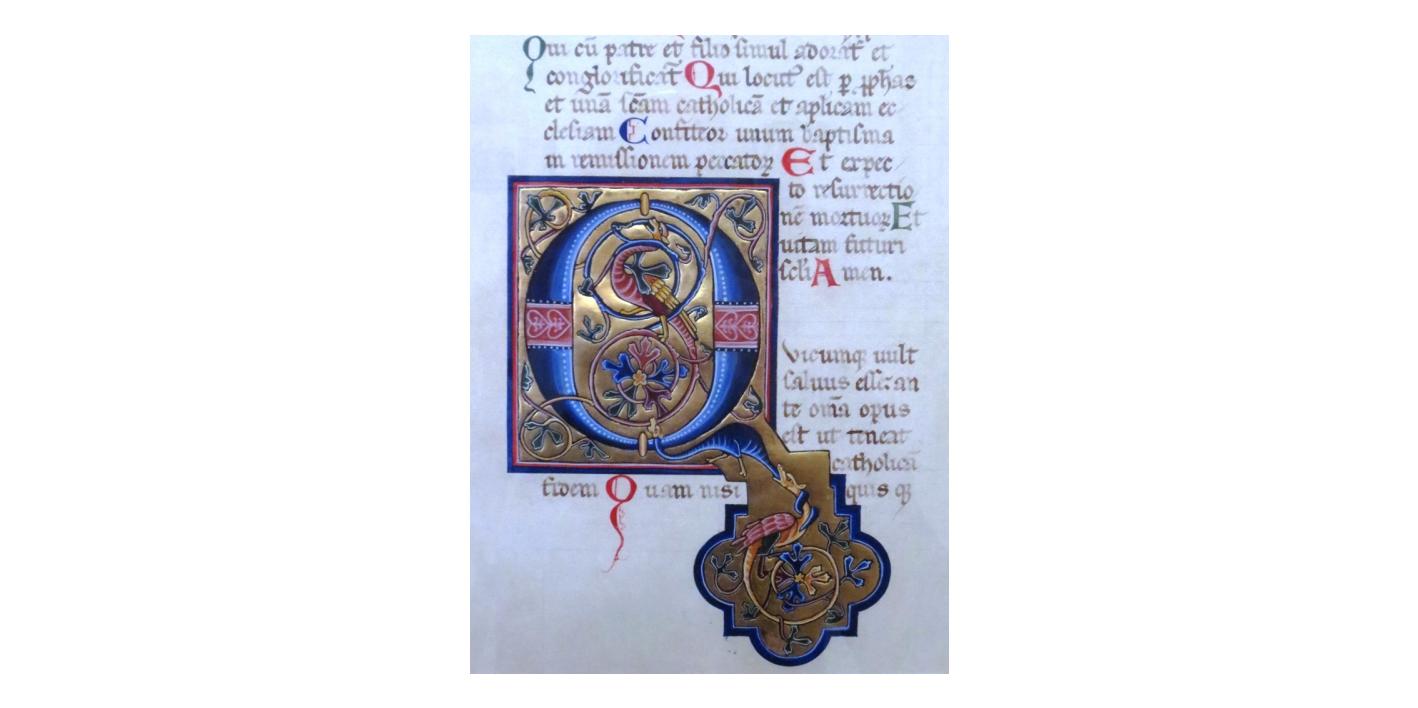 Qui cū patre et filio simul adorat᷑ et
conglorificat᷑ Qui locut᷒ est ꝑ ꝓph̄as
et unā sc̄am catholicā et aplicam ec
clesiam Confiteor unum baptisma
in remissionem peccatoꝝ Et expec
to resurrectio
nē mortuoꝝ Et
uitam futuri
scl̄i Amen.
Quicumqꝫ uult
saluus esse: an
te om̄a opus
est ut teneat
catholicā
fidem Quam nisi quis qꝫ